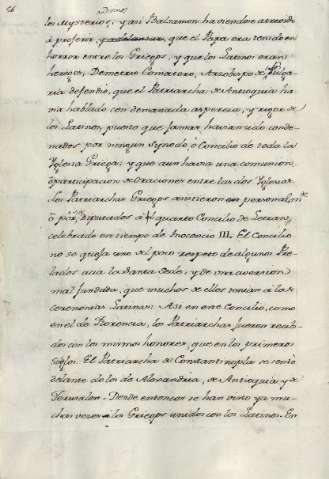 56
Divinos
los Mysterios, y aun Balsamon haviendose atrevido
à proferir, y adelantarse, que el Papa era tenido en
horror entre los Griegos, y que los Latinos eran
hereges, Demetrio Comateno, Arzobispo de Bulga-
ria defendiò, que el Patriarcha de Antioquia ha-
via hablado con demasiada aspereza, y rigor de
los Latinos, puesto que jamas havian sido conde-
nados, por ningun Synodo, ò Concilio de toda la
Yglesia Griega; y que aun havia una comunion,
ò participacion de Oraciones entre las dos Yglesias.
Los Patriarchas Griegos asistieron personalm.te
ò por Diputados à el quarto Concilio de Letran,
celebrado en tiempo de Inocencio III. El Concilio
no se quexa sino del poco respeto de algunos Pre-
lados acia la Santa Sede, y de una aversion
mal fundada, que muchos de ellos tenian à las
ceremonias Latinas: Asi en este Concilio, como
en el de Florencia, los Patriarchas fueron recibi-
dos con los mismos honores, que en los primeros
Siglos. El Patriarcha de Constantinopla se sentò
delante de los de Alexandria, de Antioquia y de
Jerusalen. Desde entonces se han visto ya mu-
chas veces à los Griegos unidos con los Latinos. En